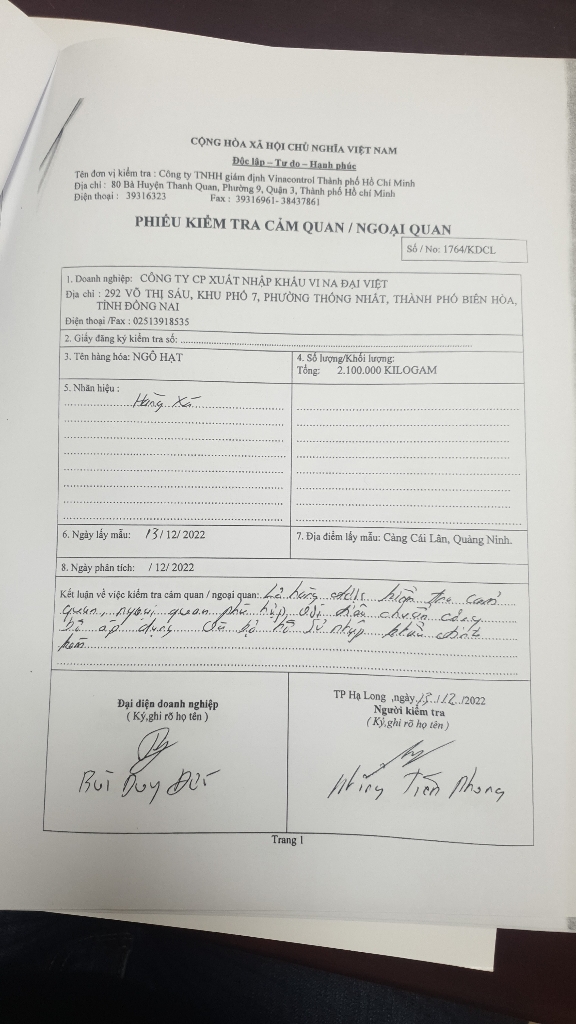 CỘNG HÒA XÃ HỘI CHỦ NGHĨA VIỆT NAM
Độc lập – Tự do – Hạnh phúc
Tên đơn vị kiểm tra : Công ty TNHH giám định Vinacontrol Thành phố Hồ Chí Minh
Địa chỉ : 80 Bà Huyện Thanh Quan, Phường 9, Quận 3, Thành phố Hồ chí Minh
Điện thoại : 39316323 Fax : 39316961- 38437861
PHIẾU KIỂM TRA CẢM QUAN / NGOẠI QUAN
Số / No: 1764/KDCL
1. Doanh nghiệp: CÔNG TY CP XUẤT NHẬP KHẨU VI NA ĐẠI VIỆT
Địa chỉ : 292 VÕ THỊ SÁU, KHU PHỐ 7, PHƯỜNG THỐNG NHẤT, THÀNH PHỐ BIÊN HÒA,
TỈNH ĐỒNG NAI
Điện thoại /Fax : 02513918535
2. Giấy đăng ký kiểm tra số:
3. Tên hàng hóa: NGÔ HẠT
4. Số lượng/Khối lượng:
Tổng: 2.100.000 KILOGAM
5. Nhãn hiệu :
Hàng Xá
6. Ngày lấy mẫu: 13/ 12/ 2022
7. Địa điểm lấy mẫu: Cảng Cái Lân, Quảng Ninh.
8. Ngày phân tích: / 12/ 2022
Kết luận về việc kiểm tra cảm quan / ngoại quan: Lô hàng kiểm tra cảm
quan, ngoại quan phù hợp với tiêu chuẩn công
bố áp dụng và hồ sơ nhập khẩu đính
kèm
Đại diện doanh nghiệp
( Ký,ghi rõ họ tên )
Bùi Duy Đức
TP Hạ Long ,ngày 13/12/2022
Người kiểm tra
( Ký,ghi rõ họ tên )
Tiến Phong
Trang 1